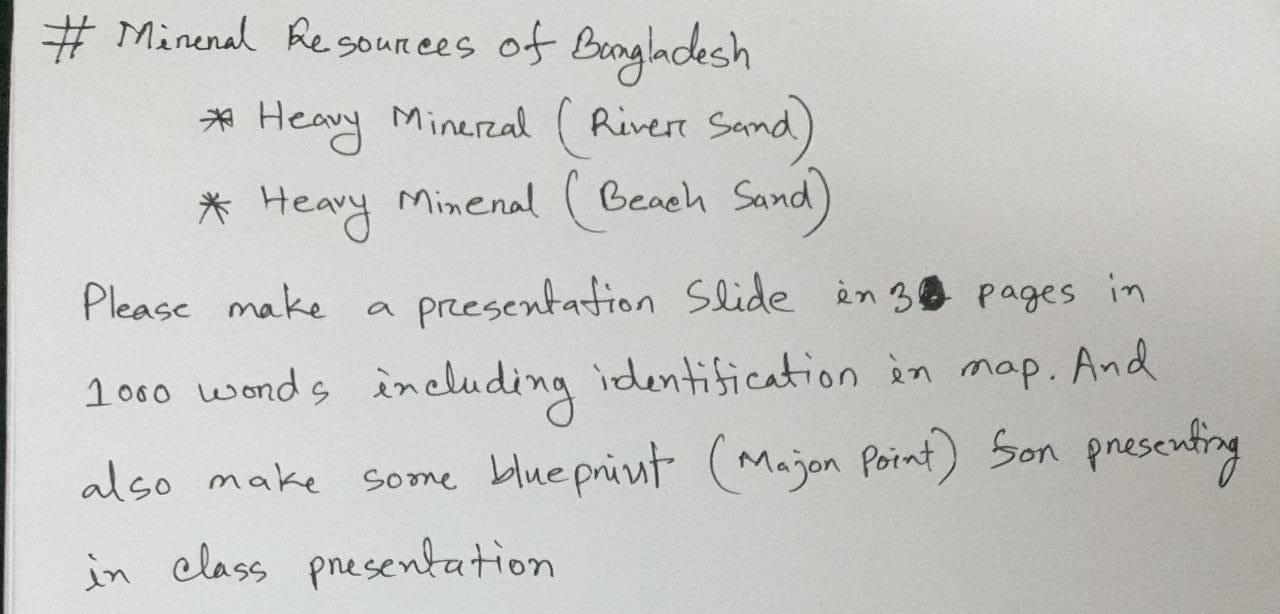 # Mineral Resources of Bangladesh
* Heavy Mineral (River Sand)
* Heavy Mineral (Beach Sand)
Please make a presentation Slide in 3 pages in
1000 words including identification in map. And
also make some blueprint (Major Point) for presenting
in class presentation